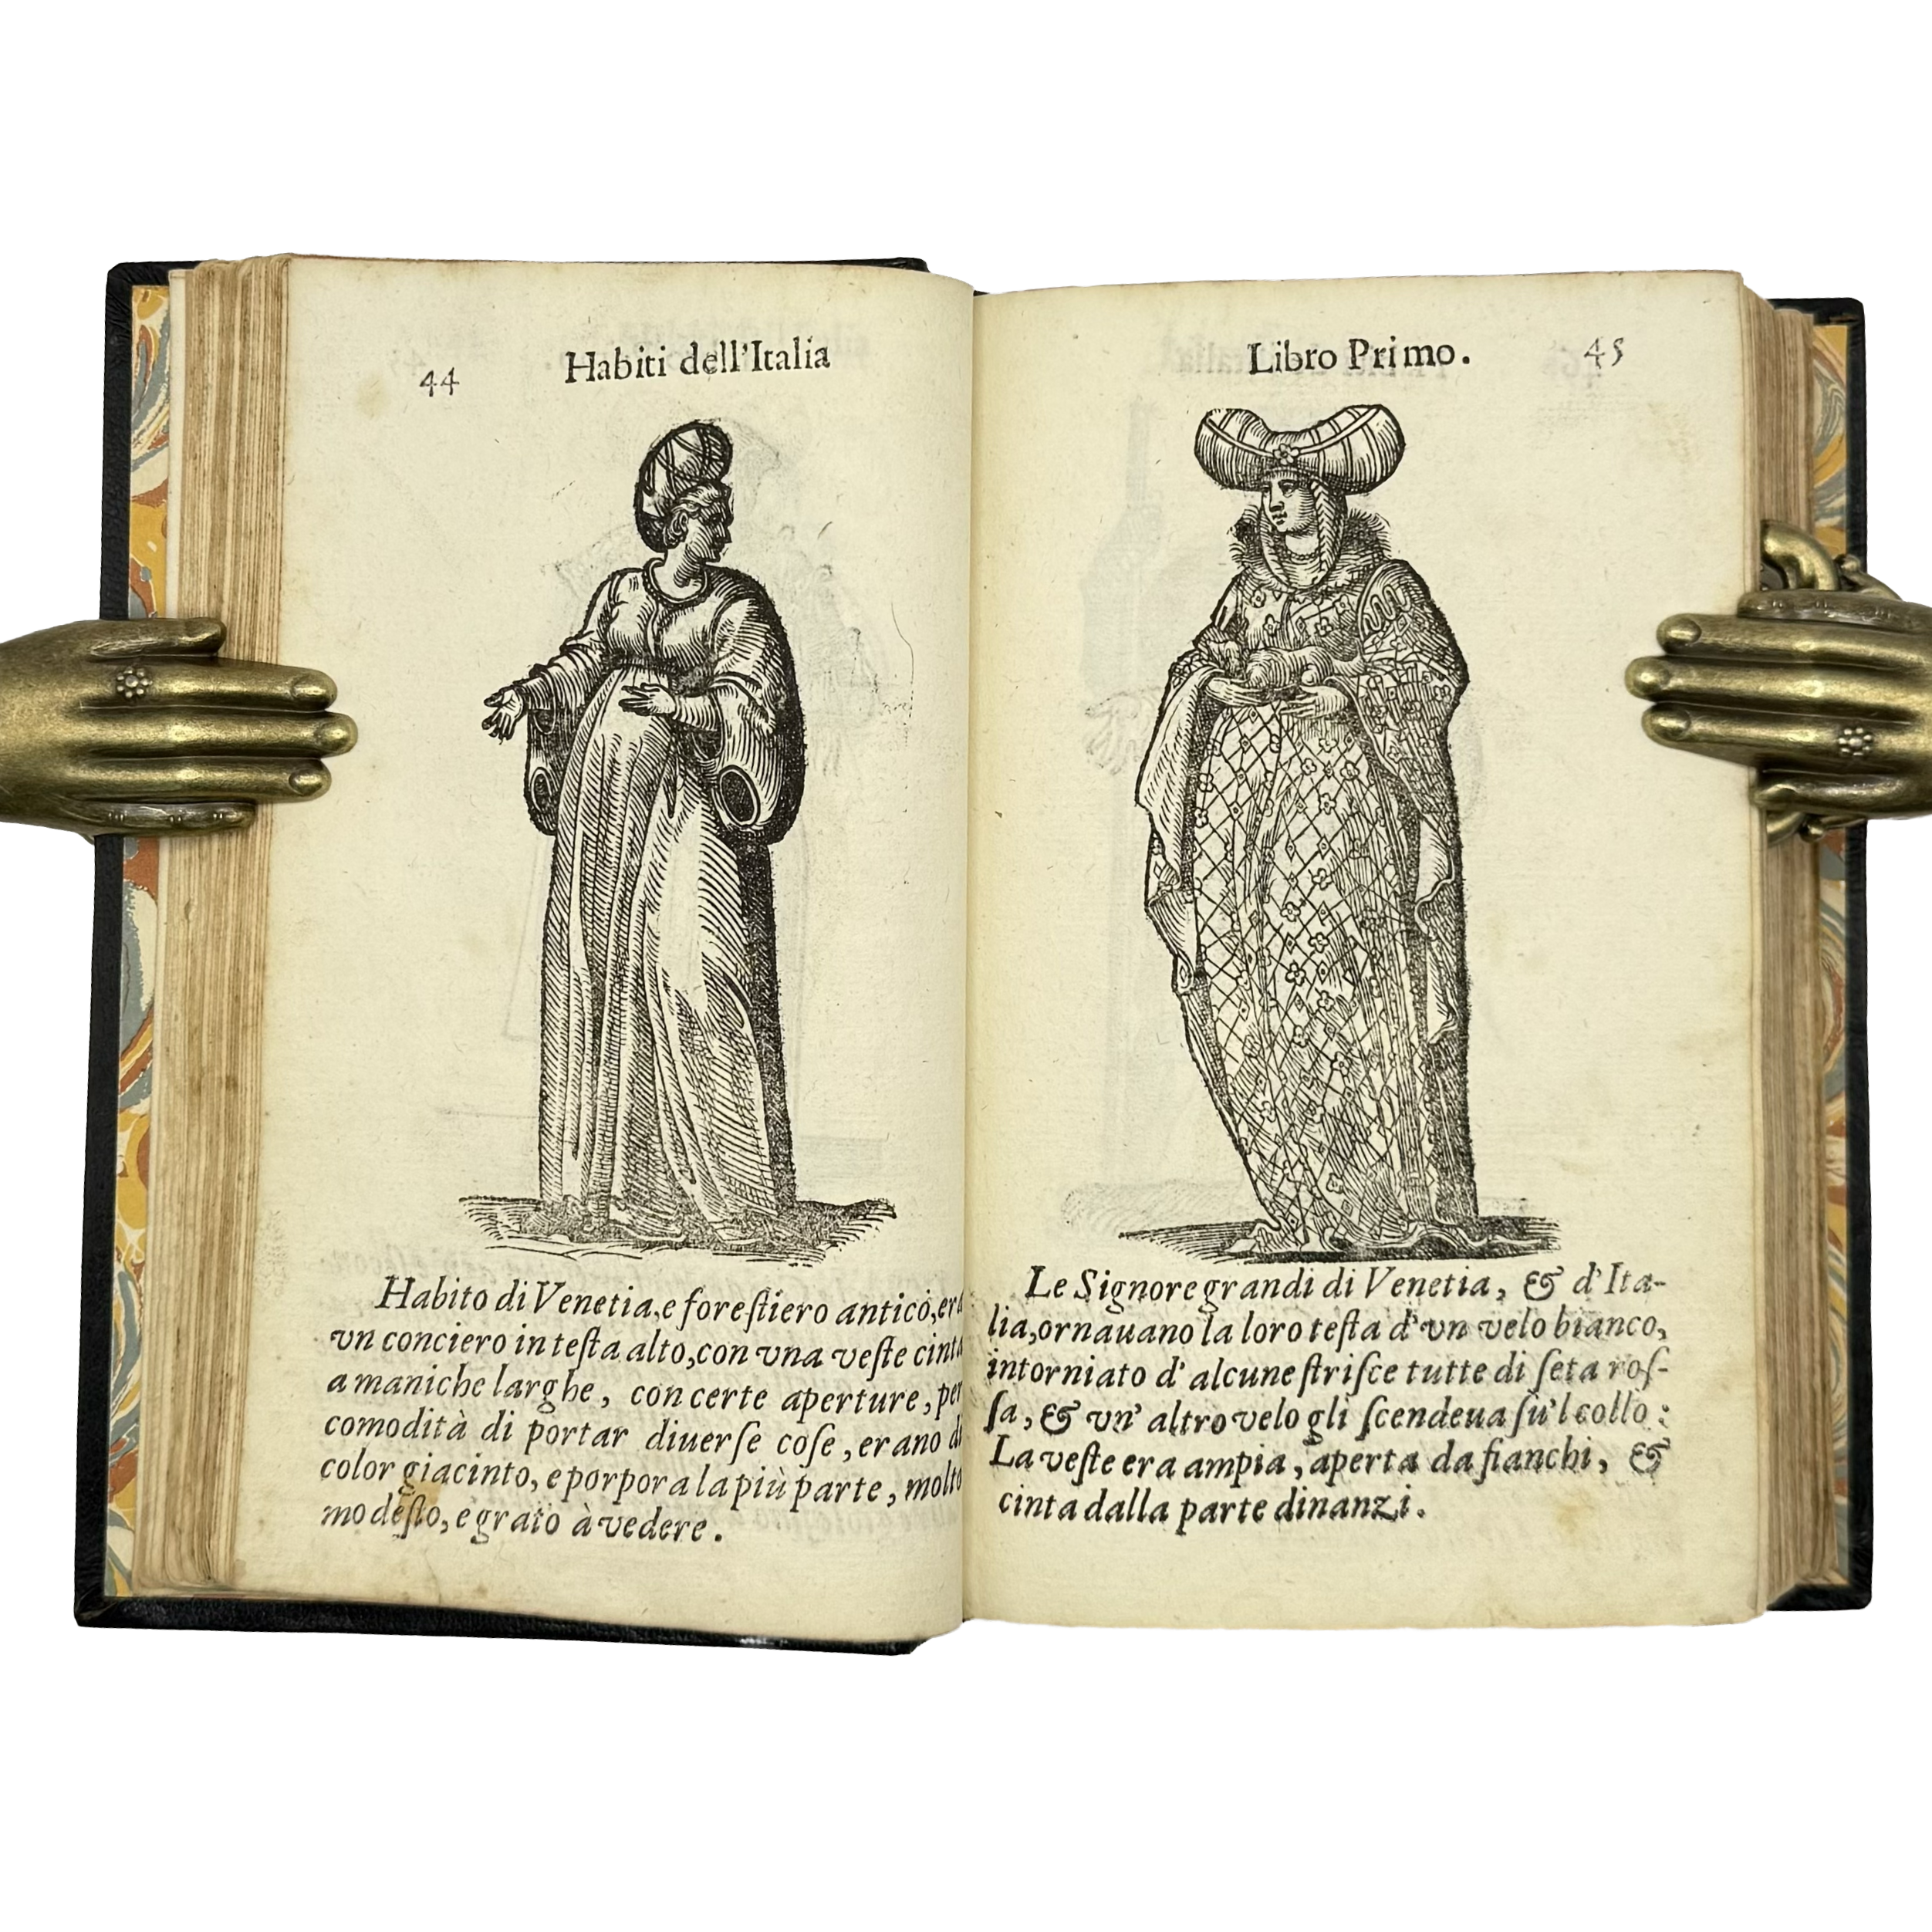 44 Habiti dell'Italia
Habito di Venetia, e foreſtiero antico, era
vn conciero in teſta alto, con vna veſte cinta
a maniche larghe, con certe aperture, per
comodità di portar diuerſe coſe, erano di
color giacinto, e porpora la più parte, molto
modeſto, e grato à vedere.
Libro Primo. 45
Le Signore grandi di Venetia, & d'Ita-
lia, ornauano la loro teſta d'vn velo bianco,
intorniato d'alcune ſtriſce tutte di ſeta roſ-
ſa, & vn' altro velo gli ſcendeua ſu'l collo:
La veſte era ampia, aperta da fianchi, &
cinta dalla parte dinanzi.